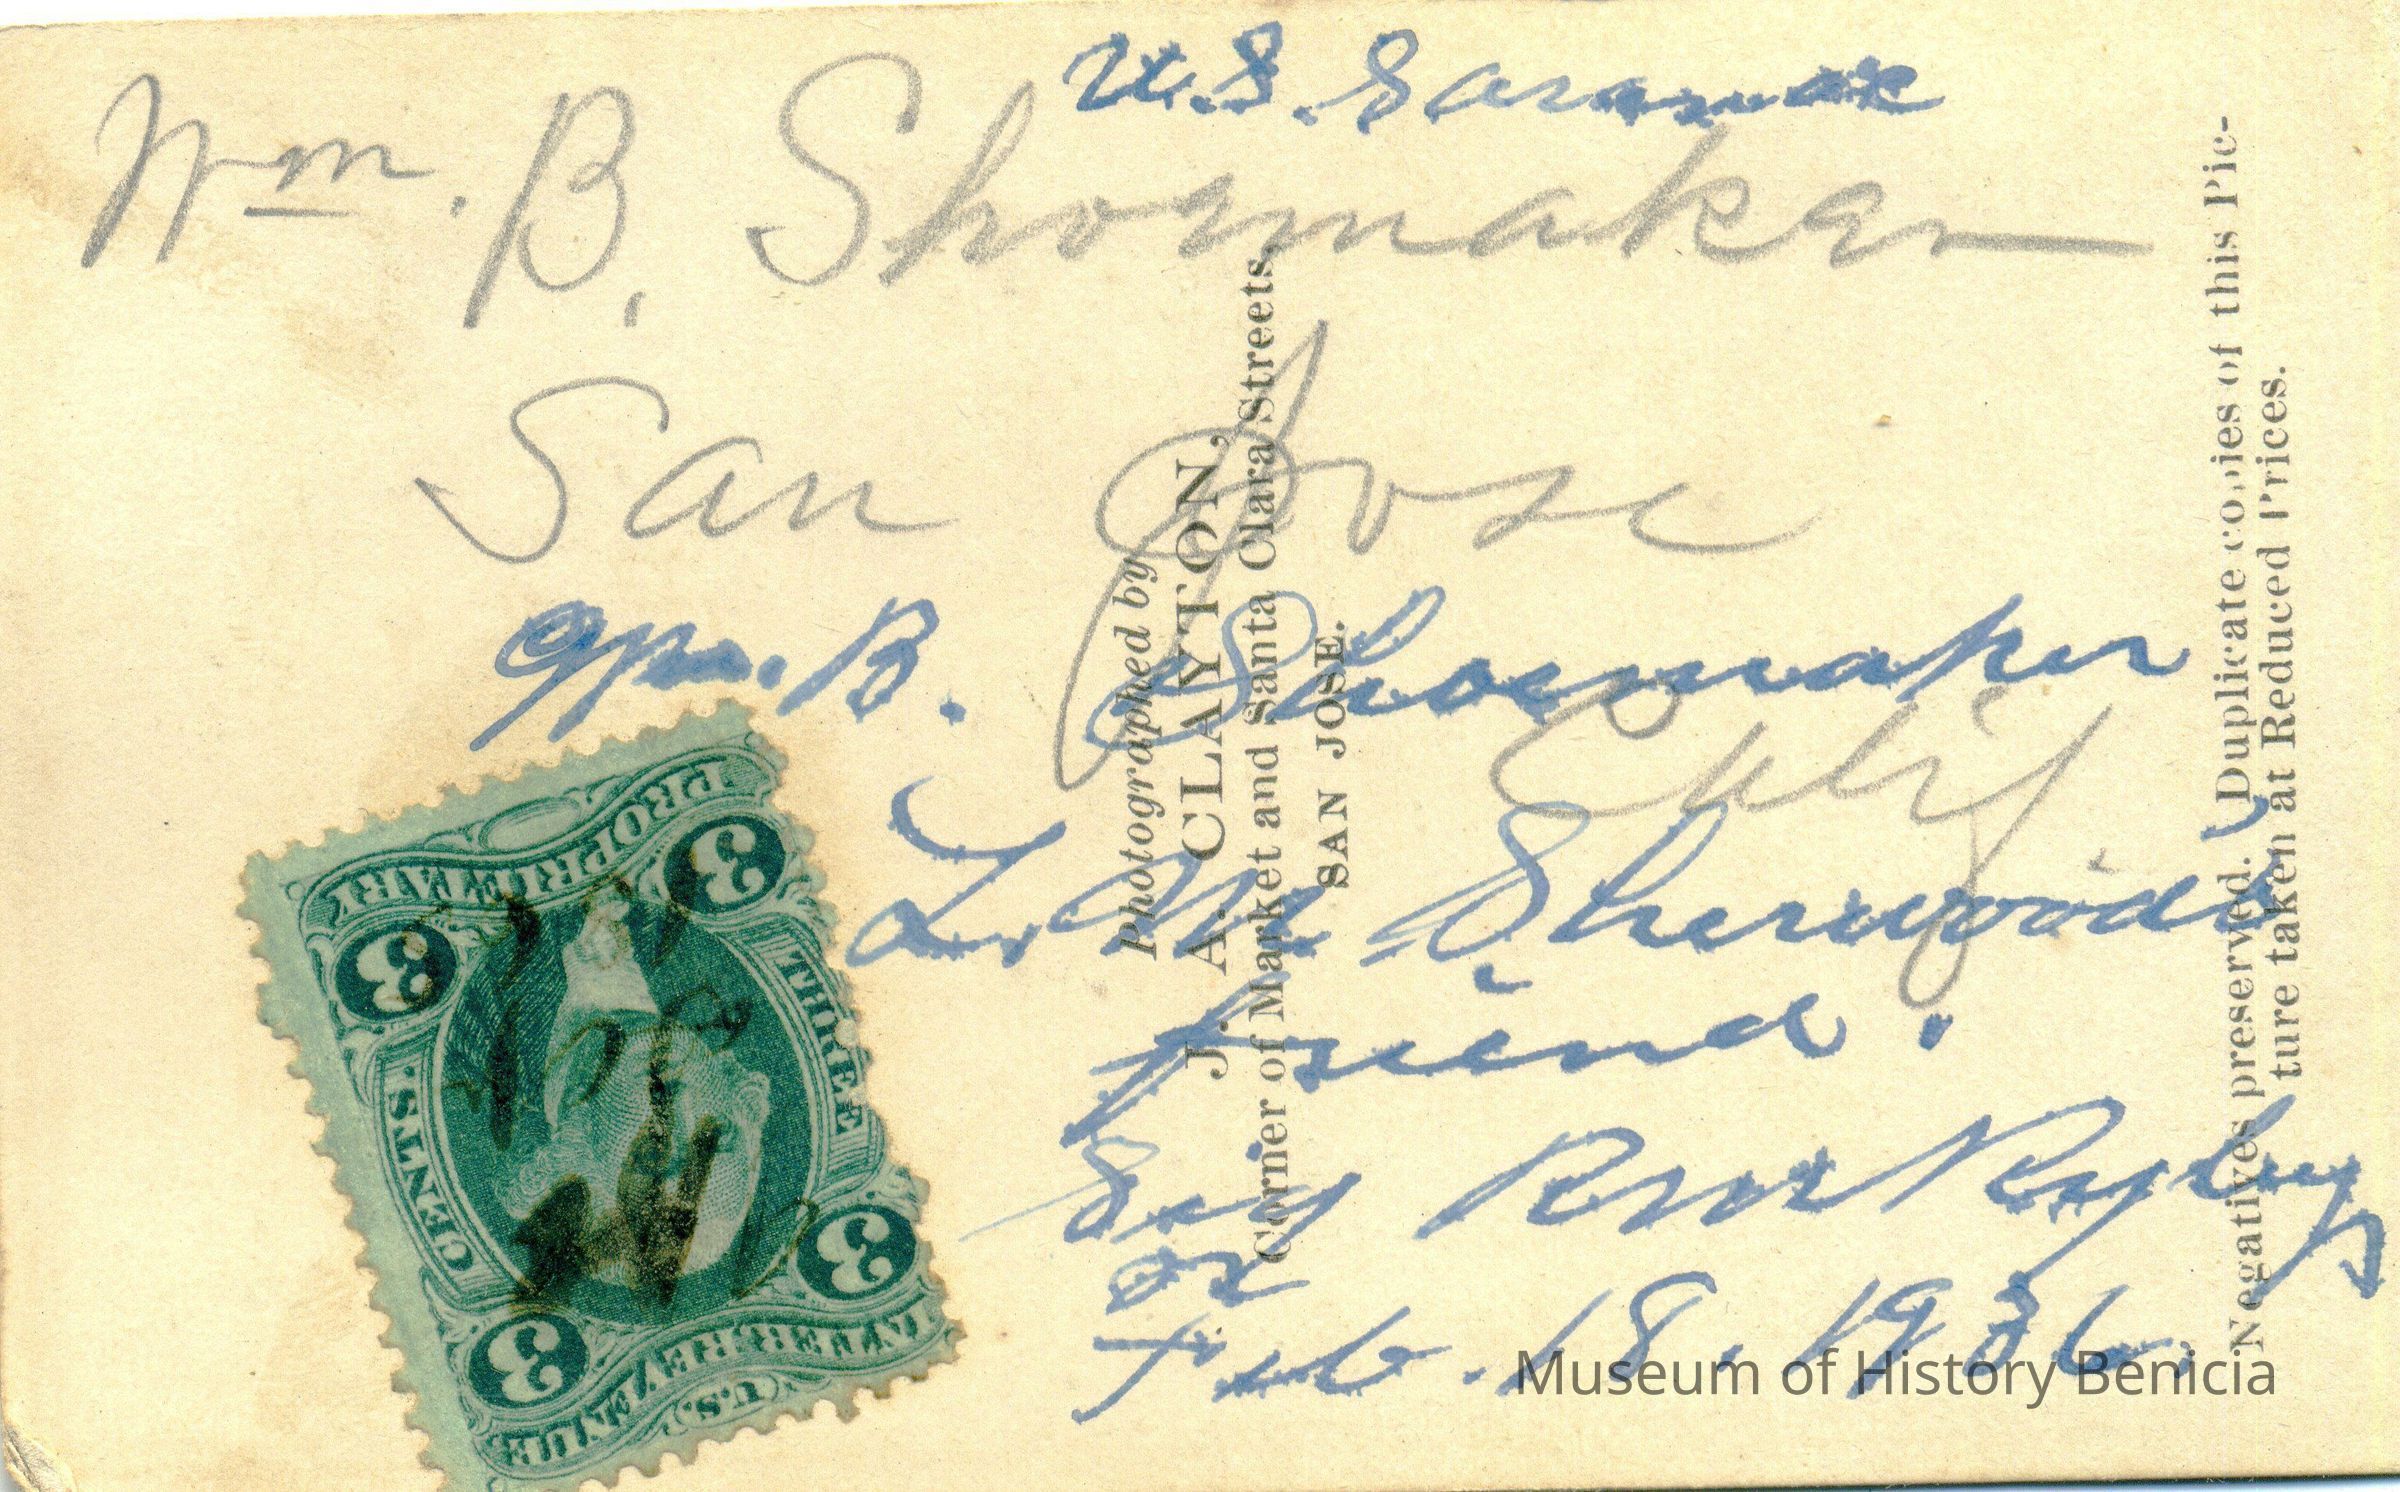 U.S.
Wm. B. Shoemaker
San Jose
Calif
Wm. B. Shoemaker
L. M Sherwoods
friend.
Say
or
Feb. 18. 1936.
Photographed by
J. A. CLAYTON,
Corner of Market and Santa Clara Streets,
SAN JOSE.
Negatives preserved. Duplicate copies of this Pic-
ture taken at Reduced Prices.
U.S. INTER. REVENUE
THREE CENTS.
PROPRIETARY
3 3
3 3
Museum of History Benicia